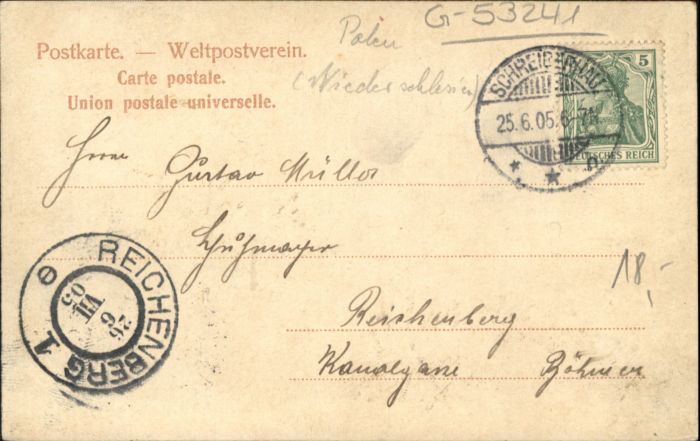 G-53241
Polen
(Niederschlesien)
Postkarte. — Weltpostverein.
Carte postale.
Union postale universelle.
SCHREIBERHAU
25.6.05. 6-7N.
5
DEUTSCHES REICH
Herrn
Gustav Müller
Schuhmayer
18,-
Reichenberg
Kanalgasse Böhmen
REICHENBERG 1
26
6
VII
05